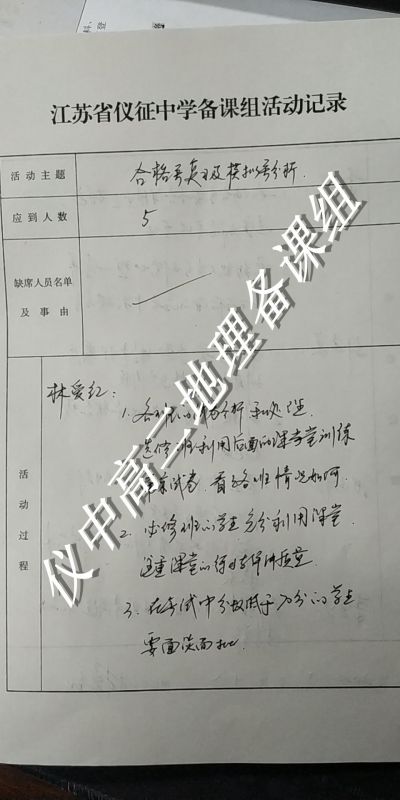 江苏省仪征中学备课组活动记录
活动主题 合格考复习及模拟考分析.
应到人数 5
缺席人员名单
及事由
活动过程
林爱红:
1. 各班的分析和处理.
选修班利用后面的课堂训练
试卷,看看各班情况如何.
2. 必修班的学生充分利用课堂,
注重课堂的
3. 在考试中分数低于70分的学生
要面谈面批.
仪中高二地理备课组